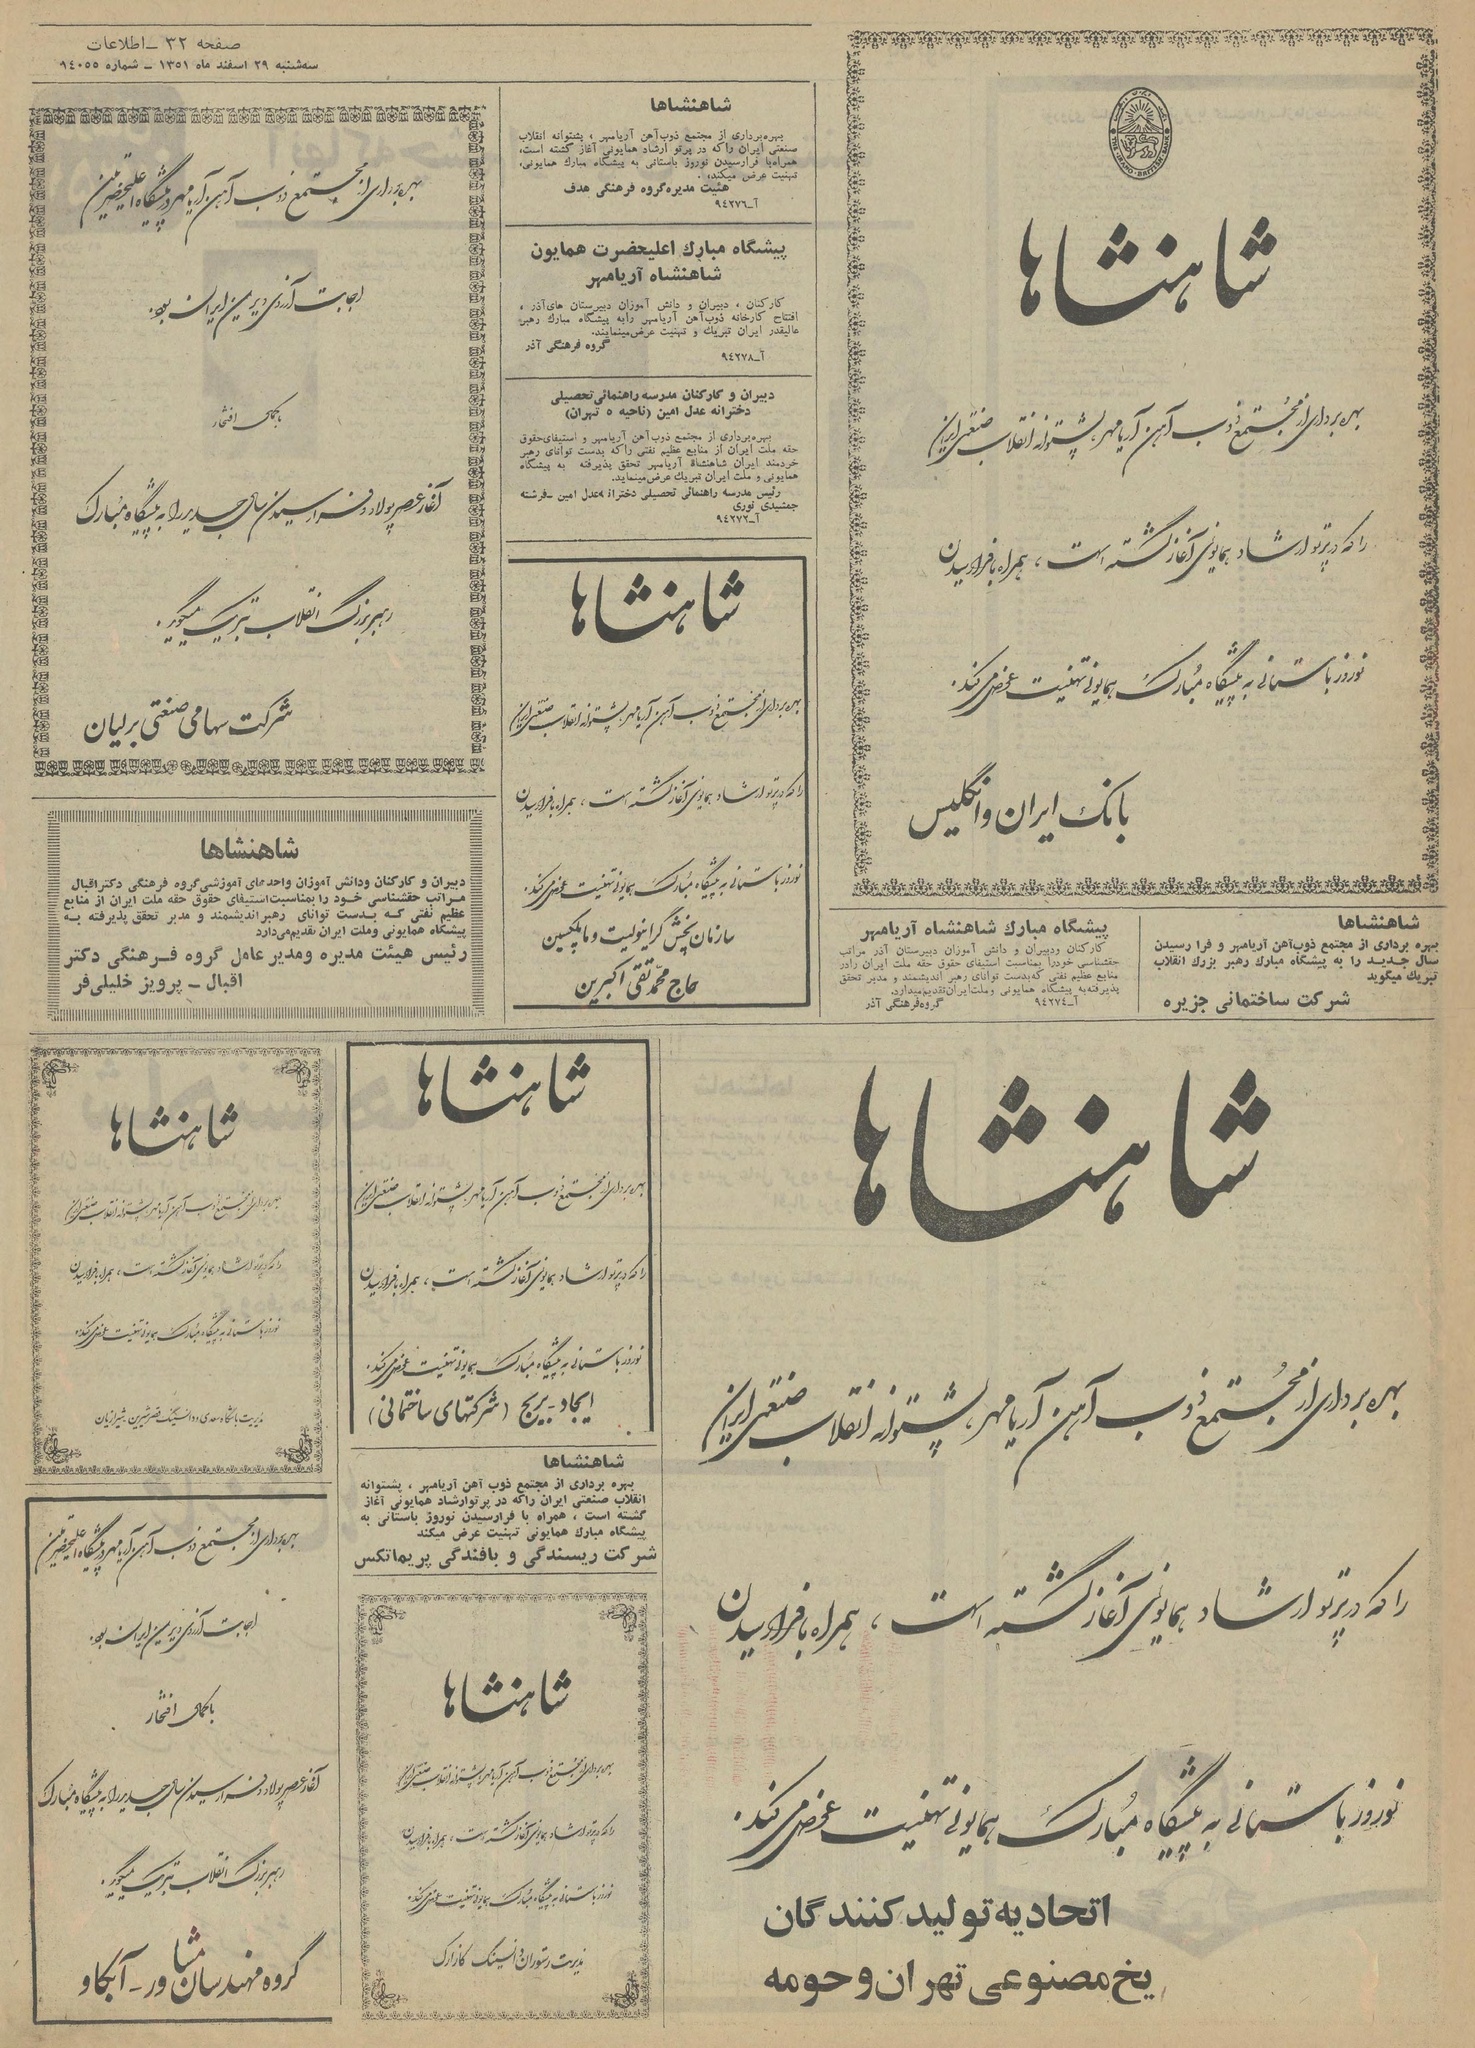 صفحه ۳۲ ـ اطلاعات
سه‌شنبه ۲۹ اسفند ماه ۱۳۵۱ ـ شماره ۹٤۰۵۵
شاهنشاها
بهره‌برداری از مجتمع ذوب آهن آریامهر، پشتوانه انقلاب صنعتی ایران
را که در پرتو ارشاد همایونی آغاز گشته است، همراه با فرارسیدن
نوروز باستانی به پیشگاه مبارک همایونی تهنیت عرض می‌کند.
بانک ایران و انگلیس
شاهنشاها
بهره‌برداری از مجتمع ذوب‌آهن آریامهر ، پشتوانه انقلاب
صنعتی ایران راکه در پرتو ارشاد همایونی آغاز گشته است،
همراه‌با فرارسیدن نوروز باستانی به پیشگاه مبارك همایونی،
تهنیت عرض میکند.
هئیت مدیره‌گروه فرهنگی هدف
آـ۹٤۲۷٦
پیشگاه مبارك اعلیحضرت همایون
شاهنشاه آریامهر
کارکنان ، دبیران و دانش آموزان دبیرستان های‌آذر ،
افتتاح کارخانه ذوب‌آهن آریامهر رابه پیشگاه مبارك رهبر
عالیقدر ایران تبریك و تهنیت عرض‌مینمایند.
گروه فرهنگی آذر
آـ۹٤۲۷۸
دبیران و کارکنان مدرسه راهنمائی‌تحصیلی
دخترانه عدل امین (ناحیه ۵ تهران)
بهره‌برداری از مجتمع ذوب‌آهن آریامهر و استیفای‌حقوق
حقه ملت ایران از منابع عظیم نفتی راکه بدست توانای رهبر
خردمند ایران شاهنشاه آریامهر تحقق پذیرفته به پیشگاه
همایونی و ملت ایران تبریك عرض‌مینماید.
رئیس مدرسه راهنمائی تحصیلی دخترانه عدل امین ـفرشته
جمشیدی نوری
آـ۹٤۲۷۲
بهره‌برداری از مجتمع ذوب آهن آریامهر در پیشگاه اعلیحضرتین
اجابت آرزوی دیرین ایران بود.
با کمال افتخار
آغاز عصر پولاد و فرارسیدن سال جدید را به پیشگاه مبارک
رهبر بزرگ انقلاب تبریک میگوید.
شرکت سهامی صنعتی برلیان
شاهنشاها
بهره‌برداری از مجتمع ذوب آهن آریامهر، پشتوانه انقلاب صنعتی ایران
را که در پرتو ارشاد همایونی آغاز گشته است، همراه با فرارسیدن
نوروز باستانی به پیشگاه مبارک همایونی تهنیت عرض می‌کند.
سازمان پخش گرانولیت و ماپلکسین
حاج محمدتقی اکبرین
شاهنشاها
دبیران و کارکنان ودانش آموزان واحدهای آموزشی‌گروه فرهنگی دکتراقبال
مراتب حقشناسی خود را بمناسبت‌استیفای حقوق حقه ملت ایران از منابع
عظیم نفتی که بدست توانای رهبر اندیشمند و مدبر تحقق پذیرفته به
پیشگاه همایونی وملت ایران تقدیم‌می‌دارد
رئیس هیئت مدیره ومدیر عامل گروه فرهنگی دکتر
اقبال ـ پرویز خلیلی‌فر
شاهنشاها
بهره برداری از مجتمع ذوب‌آهن آریامهر و فرا رسیدن
سال جدید را به پیشگاه مبارك رهبر بزرك انقلاب
تبریك میگوید
شرکت ساختمانی جزیره
پیشگاه مبارك شاهنشاه آریامهر
کارکنان ودبیران و دانش آموزان دبیرستان آذر مراتب
حقشناسی خودرا بمناسبت استیفای حقوق حقه ملت ایران رادر
منابع عظیم نفتی که‌بدست توانای رهبر اندیشمند و مدبر تحقق
پذیرفته‌به پیشگاه همایونی وملت‌ایران‌تقدیم‌میدارد.
آـ۹٤۲۷٤ گروه‌فرهنگی آذر
شاهنشاها
بهره‌برداری از مجتمع ذوب آهن آریامهر، پشتوانه انقلاب صنعتی ایران
را که در پرتو ارشاد همایونی آغاز گشته است، همراه با فرارسیدن
نوروز باستانی به پیشگاه مبارک همایونی تهنیت عرض می‌کند.
اتحادیه تولید کنندگان
یخ مصنوعی تهران و حومه
شاهنشاها
بهره‌برداری از مجتمع ذوب آهن آریامهر، پشتوانه انقلاب صنعتی ایران
را که در پرتو ارشاد همایونی آغاز گشته است، همراه با فرارسیدن
نوروز باستانی به پیشگاه مبارک همایونی تهنیت عرض می‌کند.
ایجاد ـ بریج (شرکتهای ساختمانی)
شاهنشاها
بهره برداری از مجتمع ذوب آهن آریامهر ، پشتوانه
انقلاب صنعتی ایران راکه در پرتوارشاد همایونی آغاز
گشته است ، همراه با فرارسیدن نوروز باستانی به
پیشگاه مبارك همایونی تهنیت عرض میکند
شرکت ریسندگی و بافندگی پریماتکس
شاهنشاها
بهره‌برداری از مجتمع ذوب آهن آریامهر، پشتوانه انقلاب صنعتی ایران
را که در پرتو ارشاد همایونی آغاز گشته است، همراه با فرارسیدن
نوروز باستانی به پیشگاه مبارک همایونی تهنیت عرض می‌کند.
مدیریت رستوران دانسینگ
شاهنشاها
بهره‌برداری از مجتمع ذوب آهن آریامهر، پشتوانه انقلاب صنعتی ایران
را که در پرتو ارشاد همایونی آغاز گشته است، همراه با فرارسیدن
نوروز باستانی به پیشگاه مبارک همایونی تهنیت عرض می‌کند.
مدیریت باشگاه سعدی و دانسینگ قصرشیرین ـ
بهره‌برداری از مجتمع ذوب آهن آریامهر در پیشگاه اعلیحضرتین
اجابت آرزوی دیرین ایران بود.
با کمال افتخار
آغاز عصر پولاد و فرارسیدن سال جدید را به پیشگاه مبارک
رهبر بزرگ انقلاب تبریک میگوید.
گروه مهندسان مشاور ـ آبکاو